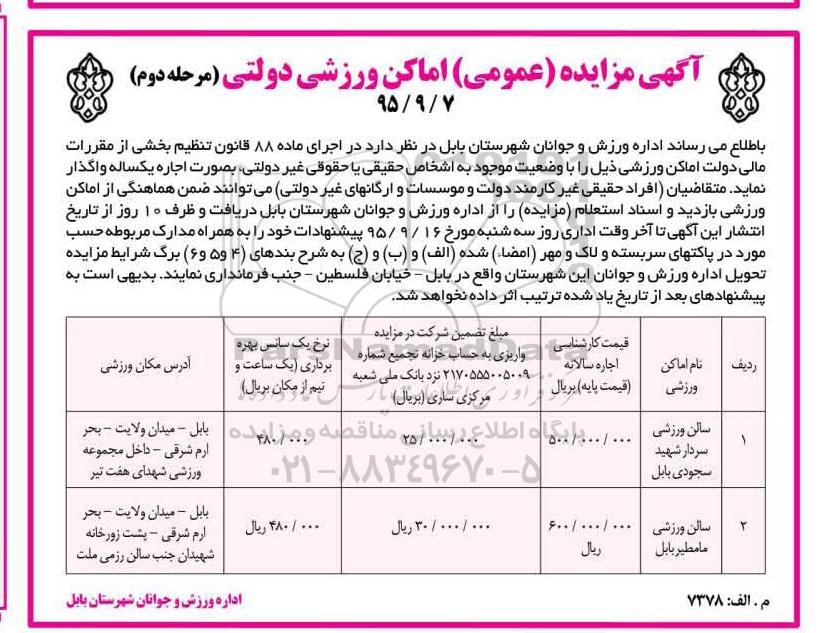 آگهی مزایده (عمومی) اماکن ورزشی دولتی (مرحله دوم)
۹۵/۹/۷
باطلاع می رساند اداره ورزش و جوانان شهرستان بابل در نظر دارد در اجرای ماده ۸۸ قانون تنظیم بخشی از مقررات
مالی دولت اماکن ورزشی ذیل را با وضعیت موجود به اشخاص حقیقی یا حقوقی غیر دولتی، بصورت اجاره یکساله واگذار
نماید. متقاضیان (افراد حقیقی غیر کارمند دولت و موسسات و ارگانهای غیر دولتی) می توانند ضمن هماهنگی از اماکن
ورزشی بازدید و اسناد استعلام (مزایده) را از اداره ورزش و جوانان شهرستان بابل دریافت و ظرف ۱۰ روز از تاریخ
انتشار این آگهی تا آخر وقت اداری روز سه شنبه مورخ ۹۵/۹/۱۶ پیشنهادات خود را به همراه مدارک مربوطه حسب
مورد در پاکتهای سربسته و لاک و مهر (امضاء) شده (الف) و (ب) و (ج) به شرح بندهای (۴ و۵ و۶) برگ شرایط مزایده
تحویل اداره ورزش و جوانان این شهرستان واقع در بابل – خیابان فلسطین – جنب فرمانداری نمایند. بدیهی است به
پیشنهادهای بعد از تاریخ یاد شده ترتیب اثر داده نخواهد شد.
ردیف
نام اماکن
ورزشی
قیمت کارشناسی
اجاره سالانه
(قیمت پایه) بریال
مبلغ تضمین شرکت در مزایده
واریزی به حساب خزانه تجمیع شماره
۲۱۷۰۵۵۵۰۰۵۰۰۹ نزد بانک ملی شعبه
مرکزی ساری (بریال)
نرخ یک سانس بهره
برداری (یک ساعت و
نیم از مکان بریال)
آدرس مکان ورزشی
۱
سالن ورزشی
سردار شهید
سجودی بابل
۵۰۰/۰۰۰/۰۰۰
۲۵/۰۰۰/۰۰۰
۴۸۰/۰۰۰
بابل – میدان ولایت – بحر
ارم شرقی – داخل مجموعه
ورزشی شهدای هفت تیر
۲
سالن ورزشی
مامطیر بابل
۶۰۰/۰۰۰/۰۰۰
ریال
۳۰/۰۰۰/۰۰۰ ریال
۴۸۰/۰۰۰ ریال
بابل – میدان ولایت – بحر
ارم شرقی – پشت زورخانه
شهیدان جنب سالن رزمی ملت
ParsNamadData
پایگاه اطلاع رسانی مناقصه و مزایده
۰۲۱-۸۸۳۴۹۶۷۰-۵
م . الف: ۷۳۷۸
اداره ورزش و جوانان شهرستان بابل